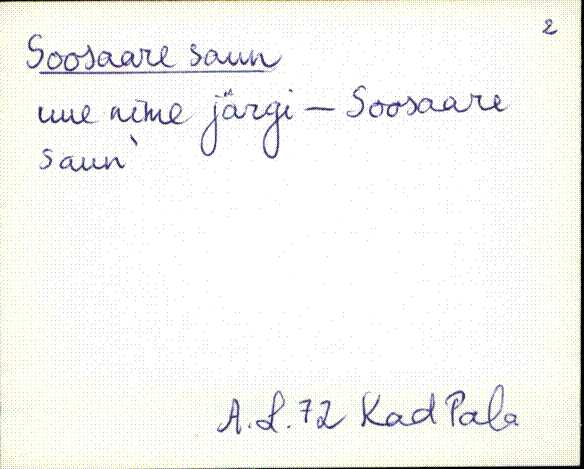 2
Soosaare saun
uue nime järgi – Soosaare
saun`
A. L. 72 Kad Pala